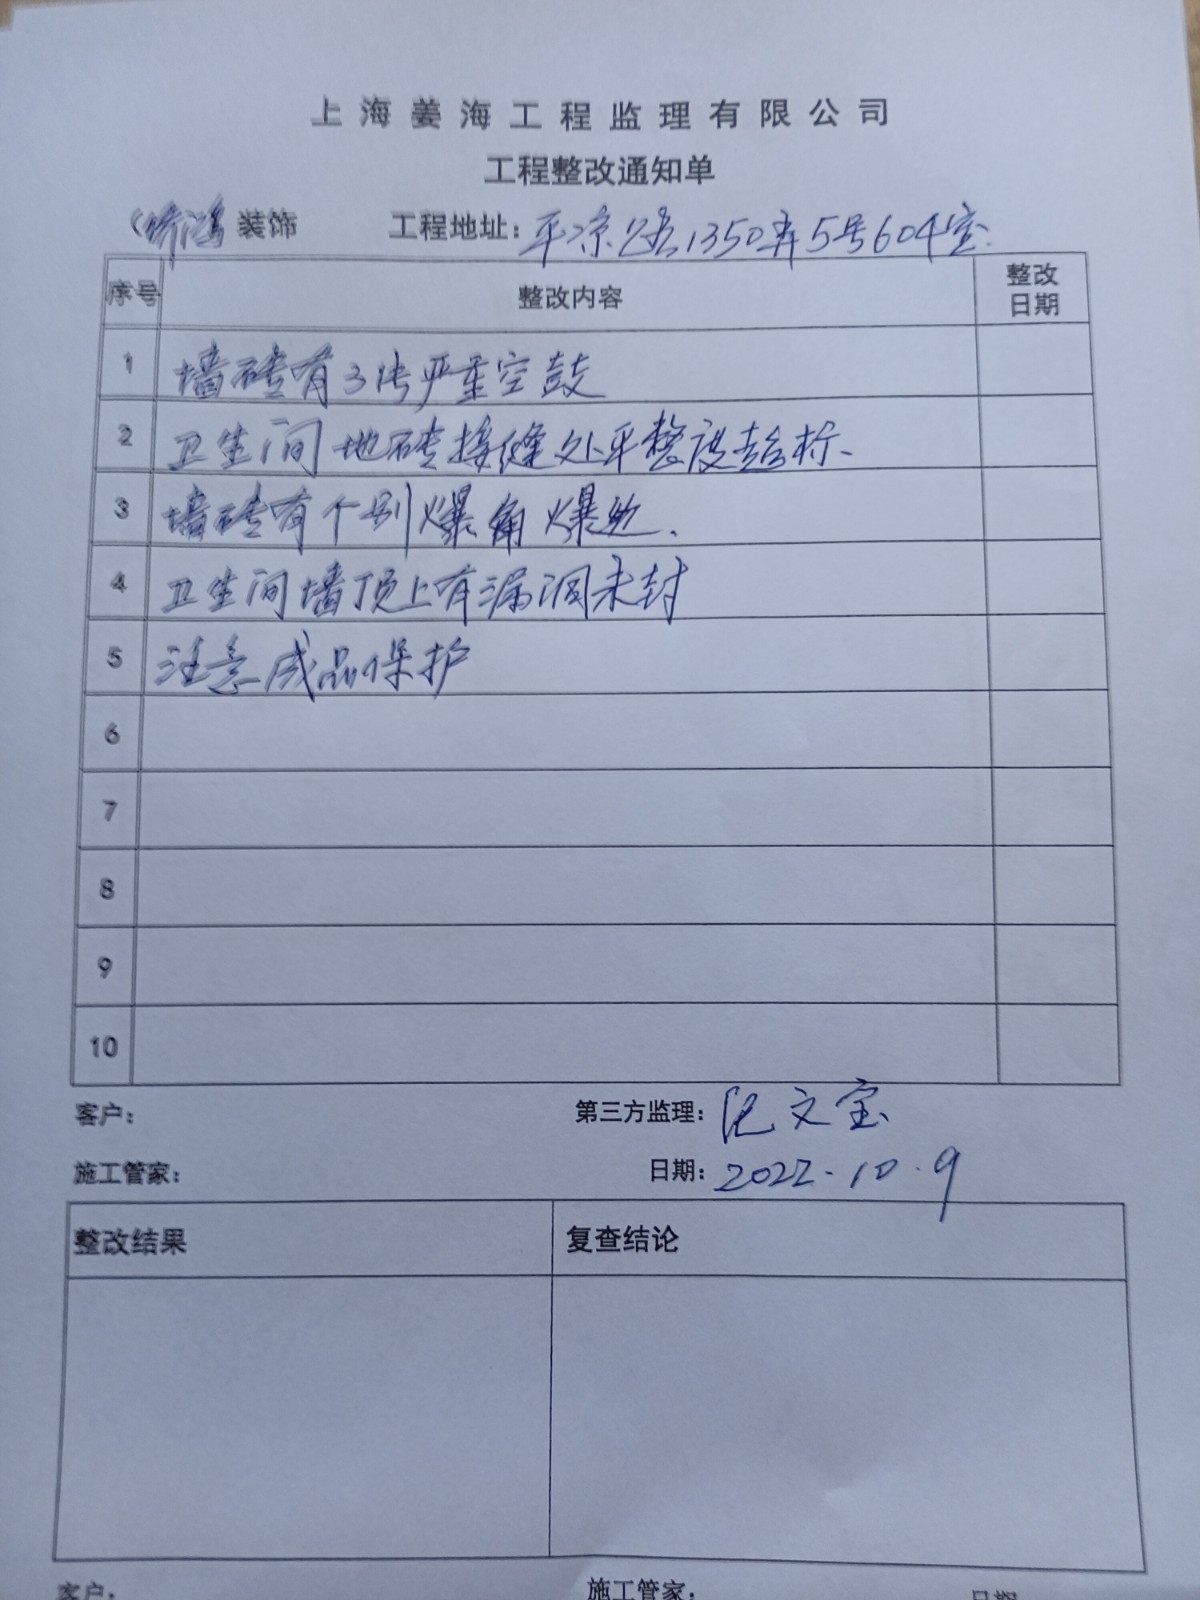 上海姜海工程监理有限公司
工程整改通知单
装饰 工程地址：平凉路1350弄5号604室
序号 整改内容 整改日期
1 墙砖有3块严重空鼓
2 卫生间地砖接缝处平整度超标、
3 墙砖有个别爆角爆边、
4 卫生间墙顶上有漏洞未封
5 注意成品保护
6
7
8
9
10
客户： 第三方监理：文宝
施工管家： 日期：2022.10.9
整改结果 复查结论
客户： 施工管家： 日期